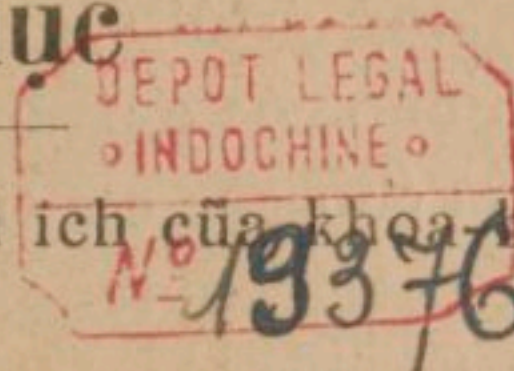 ục
DEPOT LEGAL
INDOCHINE
ích cũa khoa-
Nº 19376